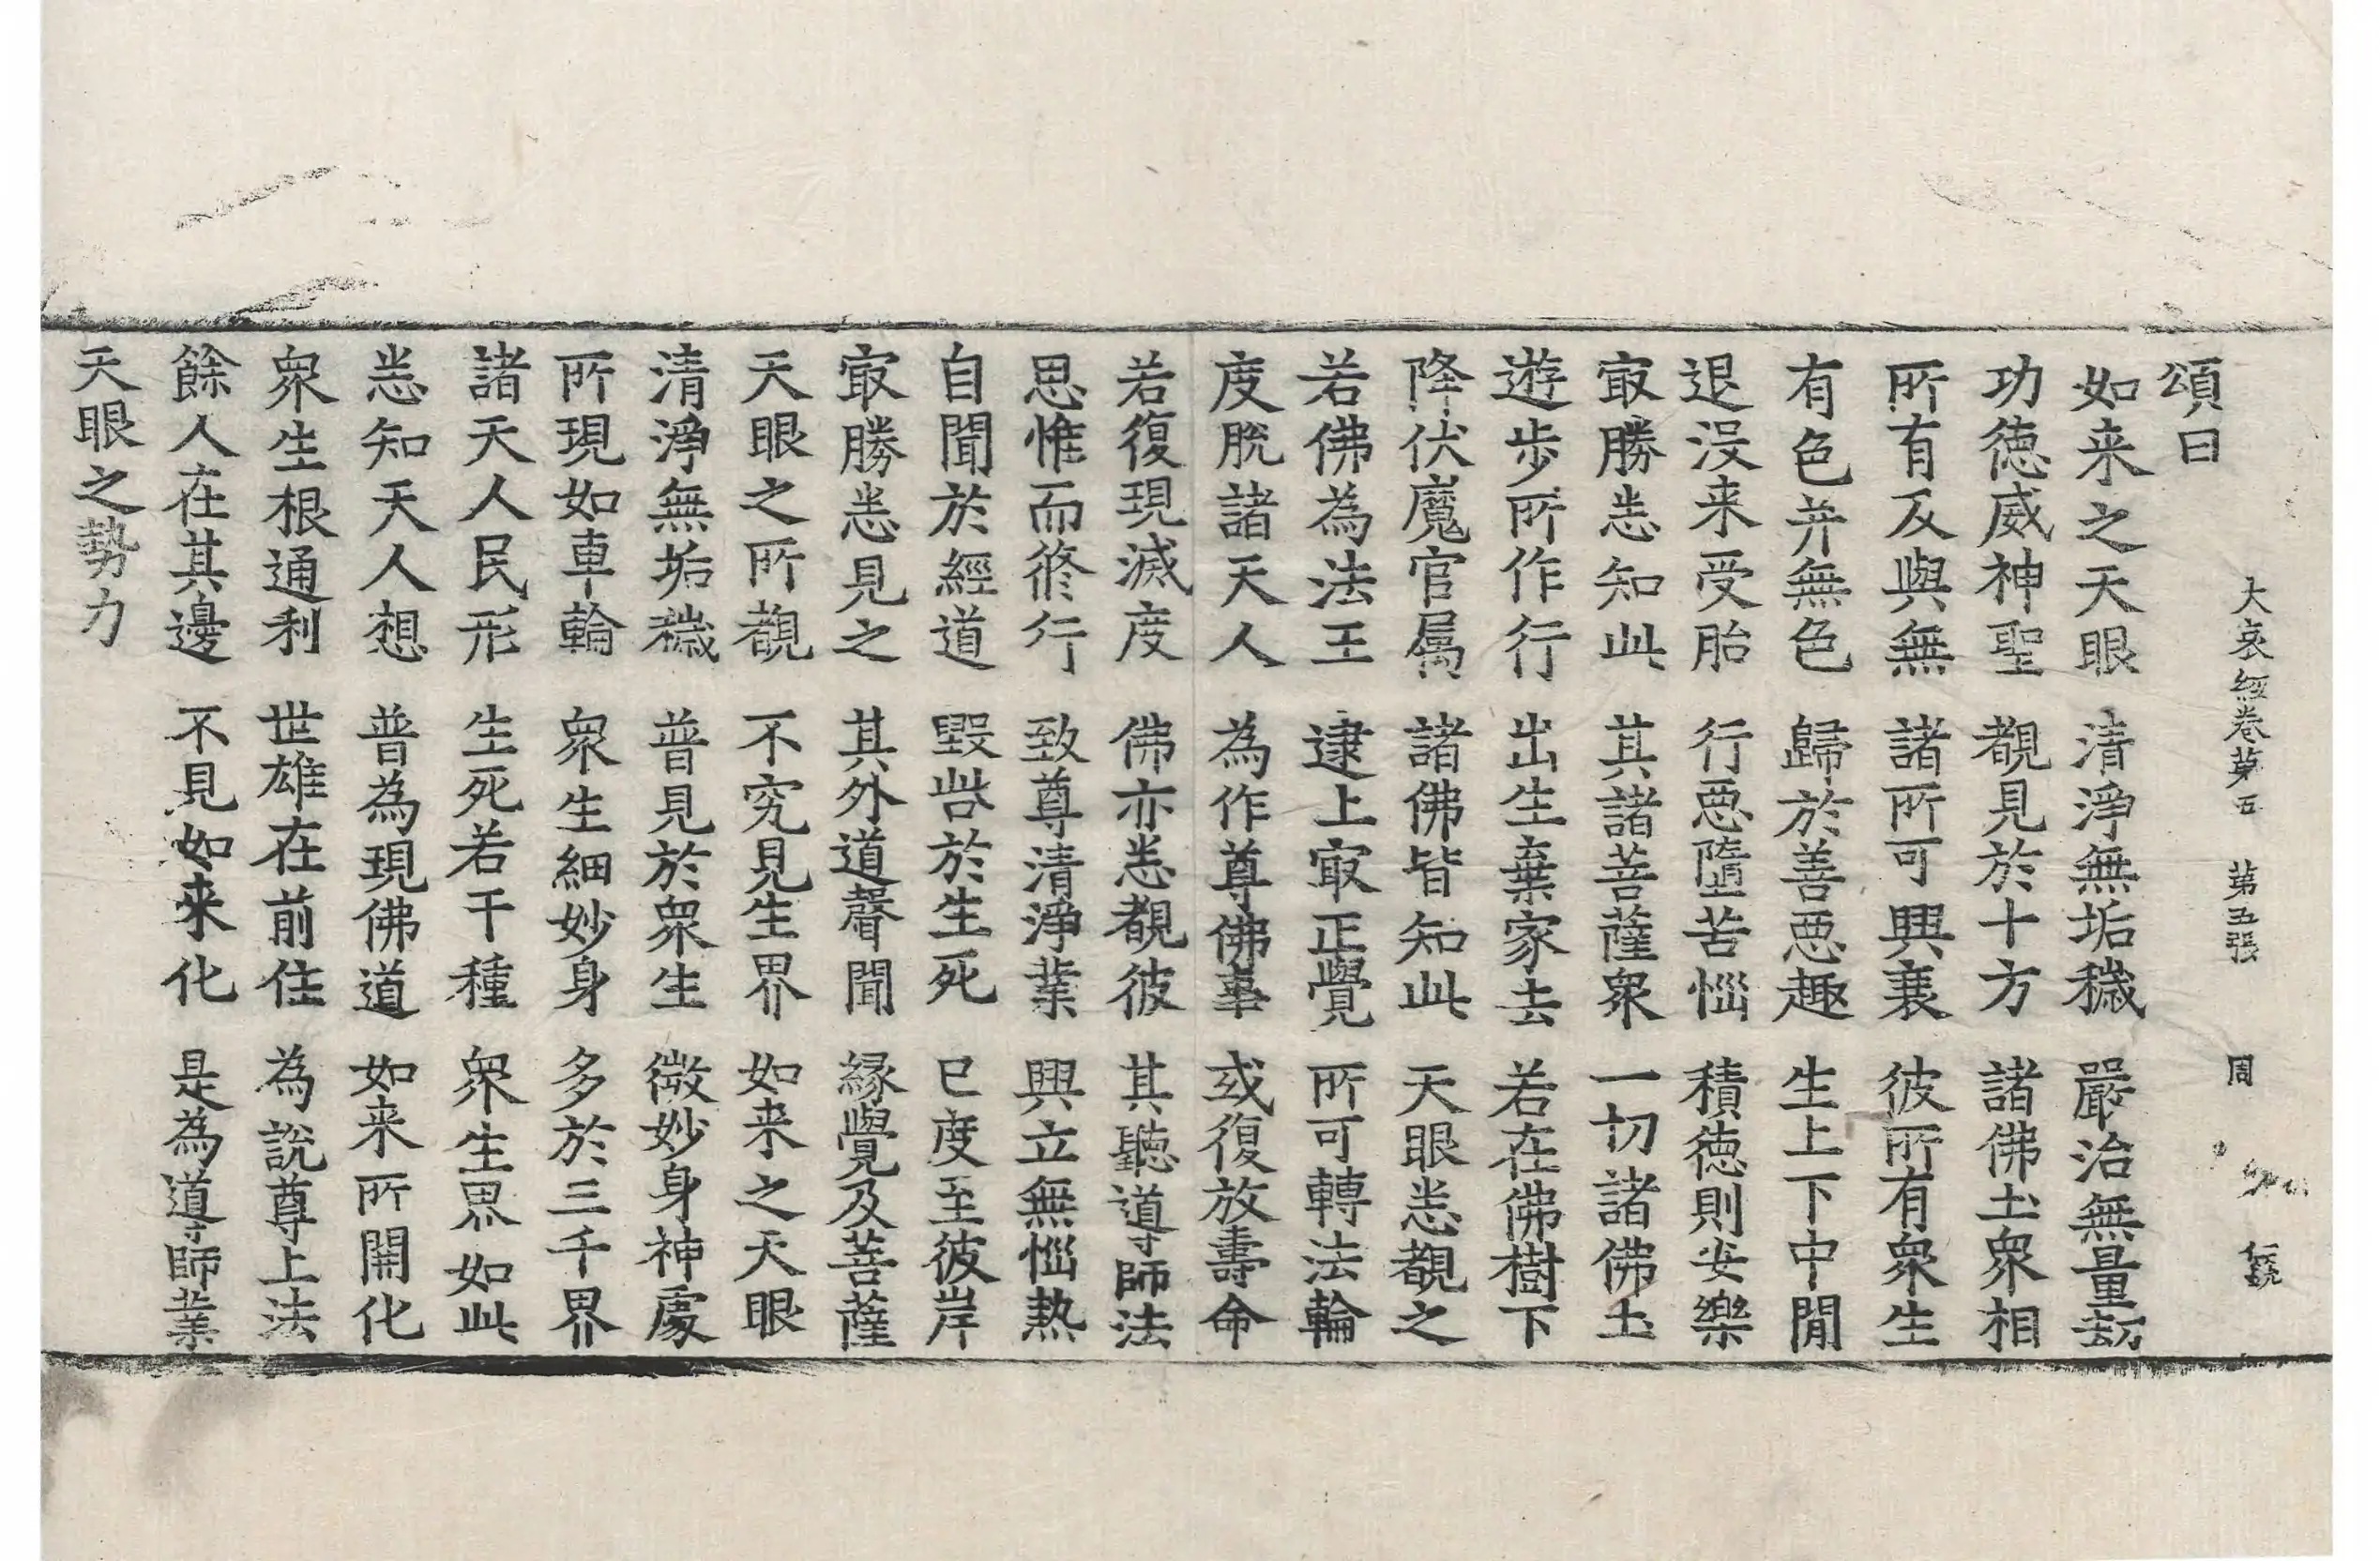 大哀經卷第五 第五張 周
頌曰
如来之天眼 清淨無垢穢 嚴治無量劫
功德威神聖 覩見於十方 諸佛土衆相
所有及與無 諸所可興衰 彼所有衆生
有色并無色 歸於善惡趣 生上下中閒
退没来受胎 行惡墮苦惱 積德則安樂
㝡勝悉知此 其諸菩薩衆 一切諸佛土
遊步所作行 出生棄家去 若在佛樹下
降伏魔官屬 諸佛皆知此 天眼悉覩之
若佛為法王 逮上㝡正覺 所可轉法輪
度脫諸天人 為作尊佛事 或復放壽命
若復現滅度 佛亦悉覩彼 其聽導師法
思惟而修行 致尊清淨業 興立無惱熱
自聞於經道 毀呰於生死 已度至彼岸
㝡勝悉見之 其外道聲聞 緣覺及菩薩
天眼之所覩 不究見生界 如来之天眼
清淨無垢穢 普見於衆生 微妙身神處
所現如車輪 衆生細妙身 多於三千界
諸天人民形 生死若干種 衆生界如此
悉知天人想 普為現佛道 如来所開化
衆生根通利 世雄在前住 為說尊上法
餘人在其邊 不見如来化 是為導師業
天眼之勢力